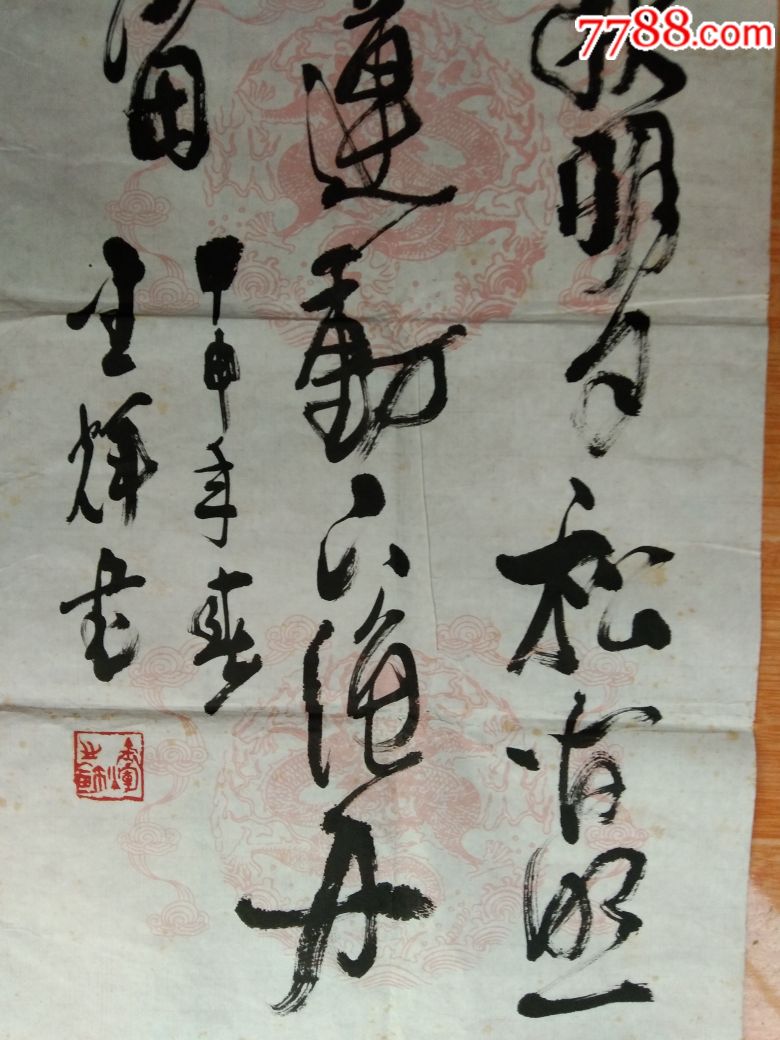 7788.com
秋明月松間照
蓮動下漁舟
留
甲申年春
輝书